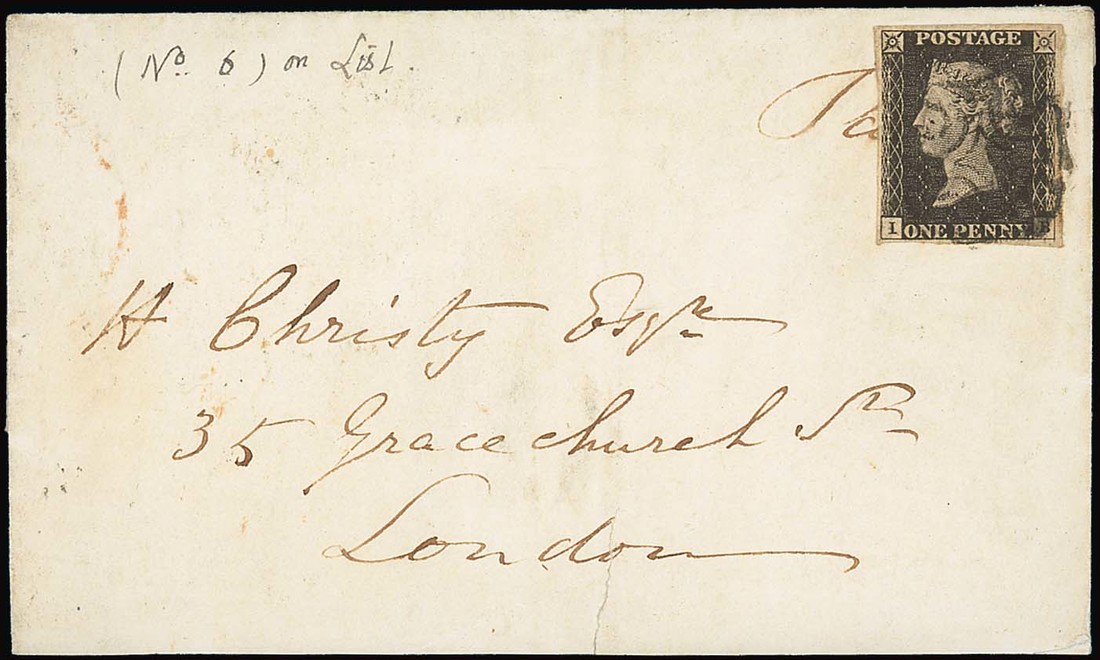 (No. 6) on List.
POSTAGE
I ONE PENNY. B
H Christy Esqre
35 Gracechurch St
London